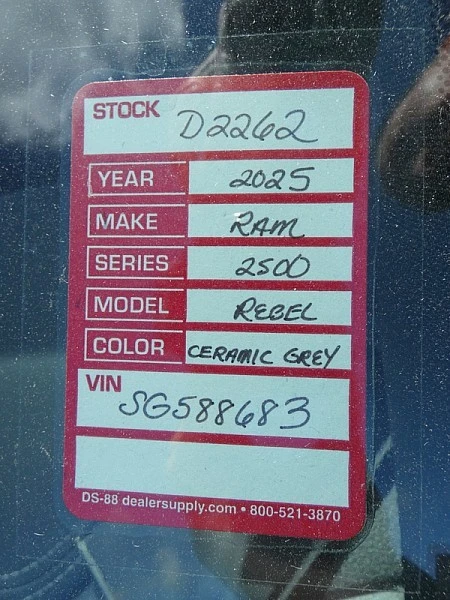 STOCK D2262
YEAR 2025
MAKE RAM
SERIES 2500
MODEL REBEL
COLOR CERAMIC GREY
VIN SG588683
DS-88 dealersupply.com • 800-521-3870